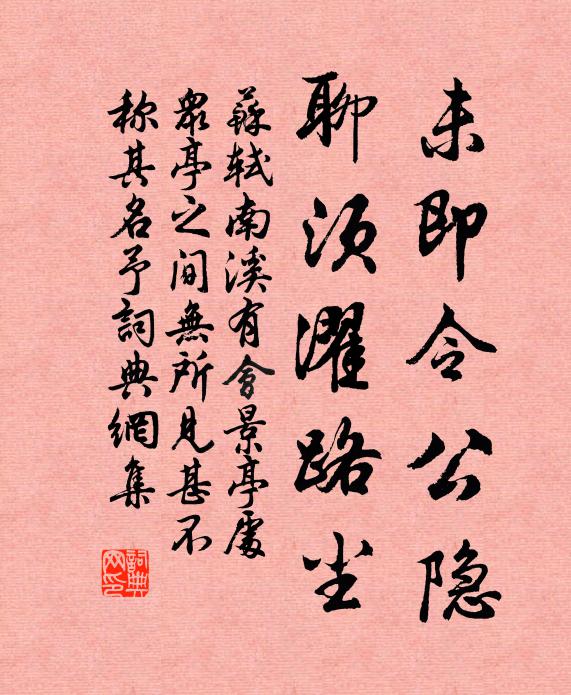 未即令公隐
聊须濯路尘
蘇軾南溪有會景亭處
眾亭之间無所見甚不
称其名予詞典網集
詞典
网印